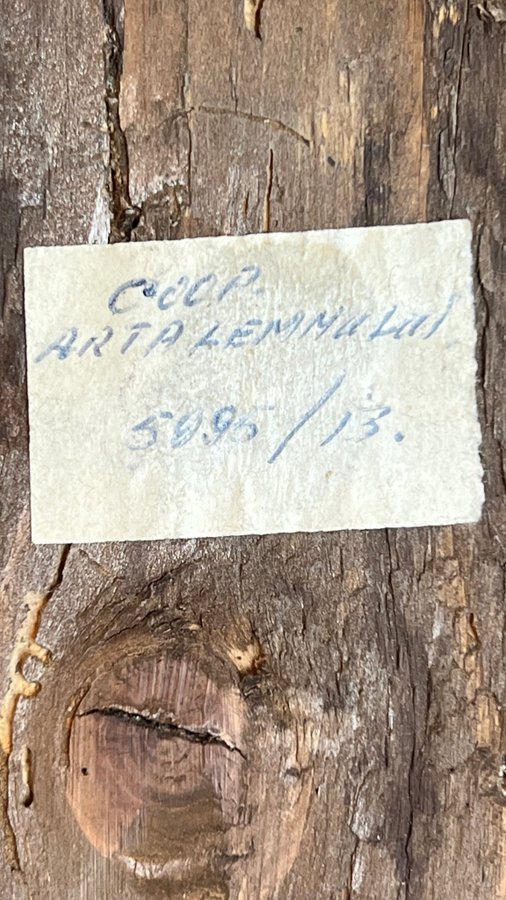 COOP.
ARTA LEMNULUI
5095/13.